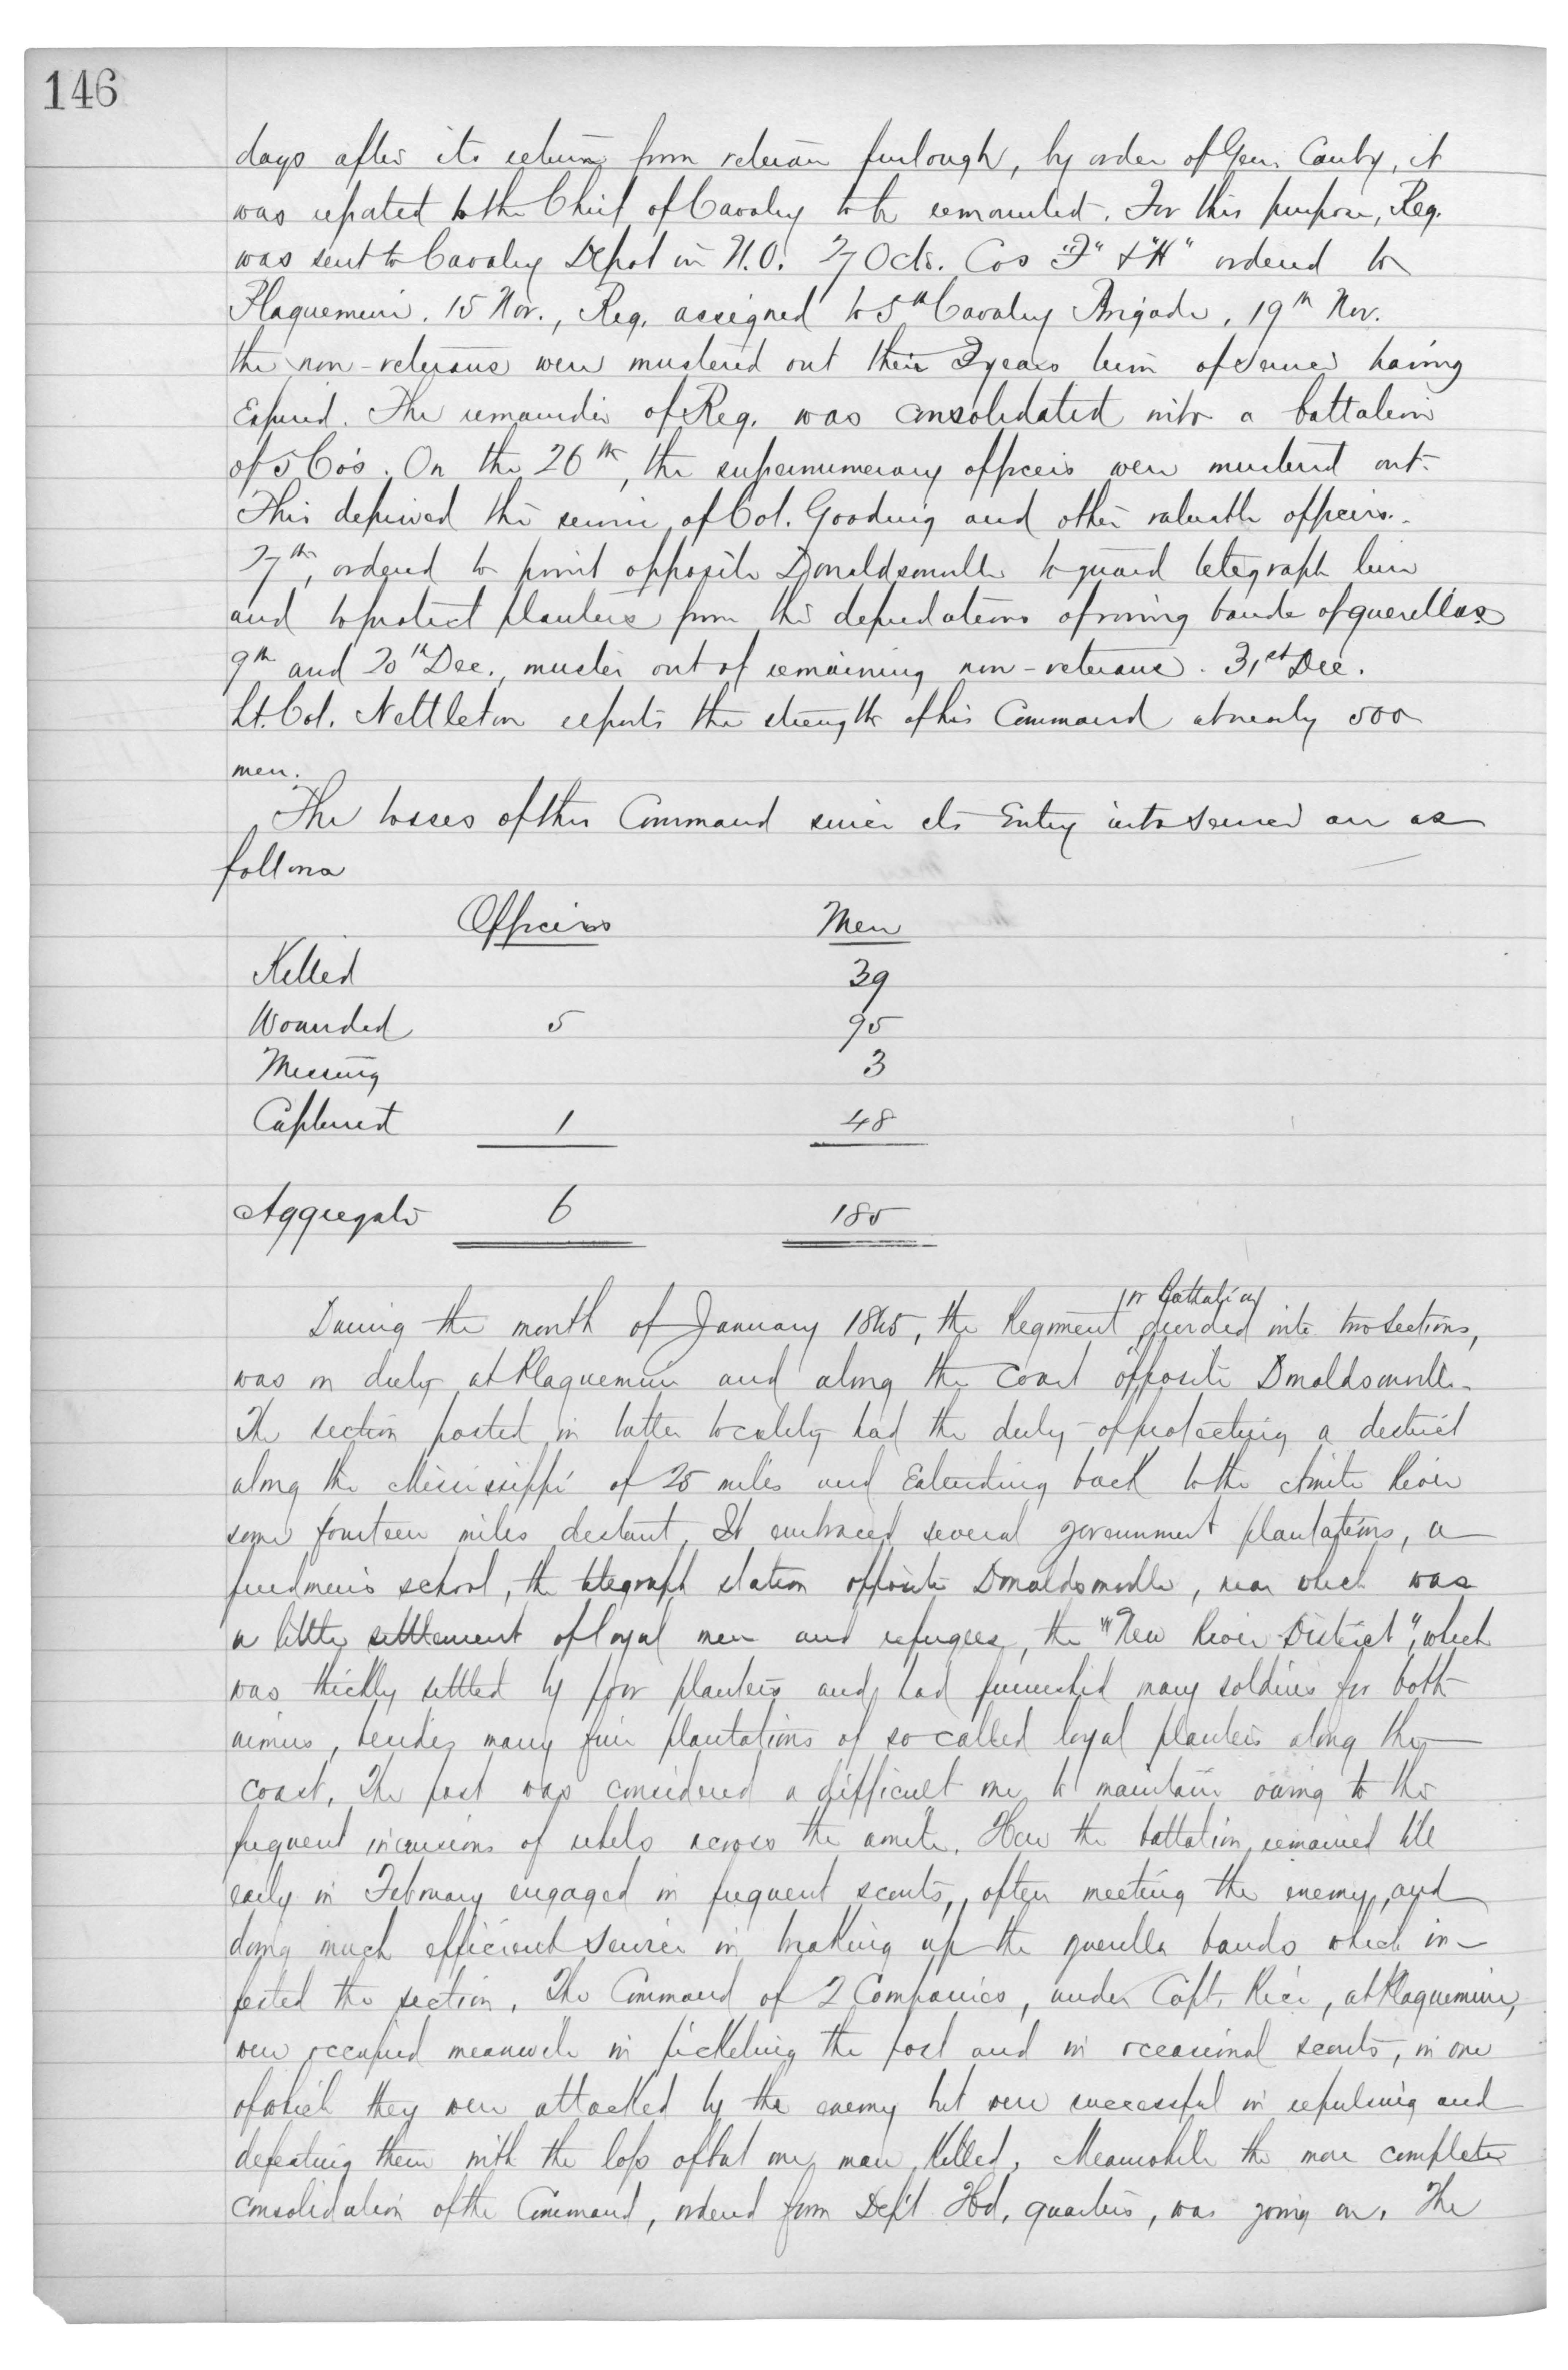 146
days after its return from veteran furlough, by order of Gen. Canby, it
was reported to the Chief of Cavalry to be remounted. For this purpose, Reg.
was sent to Cavalry Depot in N.O. 27 Octo. Cos "F" & "H" ordered to
Plaquemine. 15 Nov., Reg. assigned to 5th Cavalry Brigade. 19th Nov.
the non-veterans were mustered out their 3 years term of service having
Expired. The remainder of Reg. was consolidated into a battalion
of 5 Co's. On the 26th, the supernumerary officers were mustered out.
This deprived the service of Col. Gooding and other valuable officers.
27th, ordered to point opposite Donaldsonville to guard telegraph line
and to protect planters from the depredations of roving bands of guerellas
9th and 20th Dec., muster out of remaining non-veterans. 31st Dec.
Lt. Col. Nettleton reports the strength of his Command at nearly 500
men.
The losses of this Command since its Entry into service are as
follows
Officers Men
Killed 39
Wounded 5 95
Missing 3
Captured 1 48
Aggregate 6 185
or battalion
During the month of January 1865, the Regiment divided into two sections,
was on duty at Plaquemine and along the coast opposite Donaldsonville.
The section posted in latter locality had the duty of protecting a district
along the Mississippi of 25 miles and Extending back to the Amite River
some fourteen miles distant. It embraced several government plantations, a
freedmen's school, the telegraph station opposite Donaldsonville, near which was
a little settlement of loyal men and refugees, the "New River District", which
was thickly settled by poor planters and had furnished many soldiers for both
armies, besides many fine plantations of so called loyal planters along the
coast. The post was considered a difficult one to maintain owing to the
frequent incursions of rebels across the amite. Here the battalion remained till
early in February engaged in frequent scouts, often meeting the enemy, and
doing much efficient service in breaking up the guerilla bands which in-
fested the section. The Command of 2 Companies, under Capt. Rice, at Plaquemine,
were occupied meanwhile in picketing the post and in occasional scouts, in one
of which they were attacked by the enemy but were successful in repulsing and
defeating them with the loss of but one man killed. Meanwhile the more complete
consolidation of the Command, ordered from Dep't Hd. quarters, was going on. The